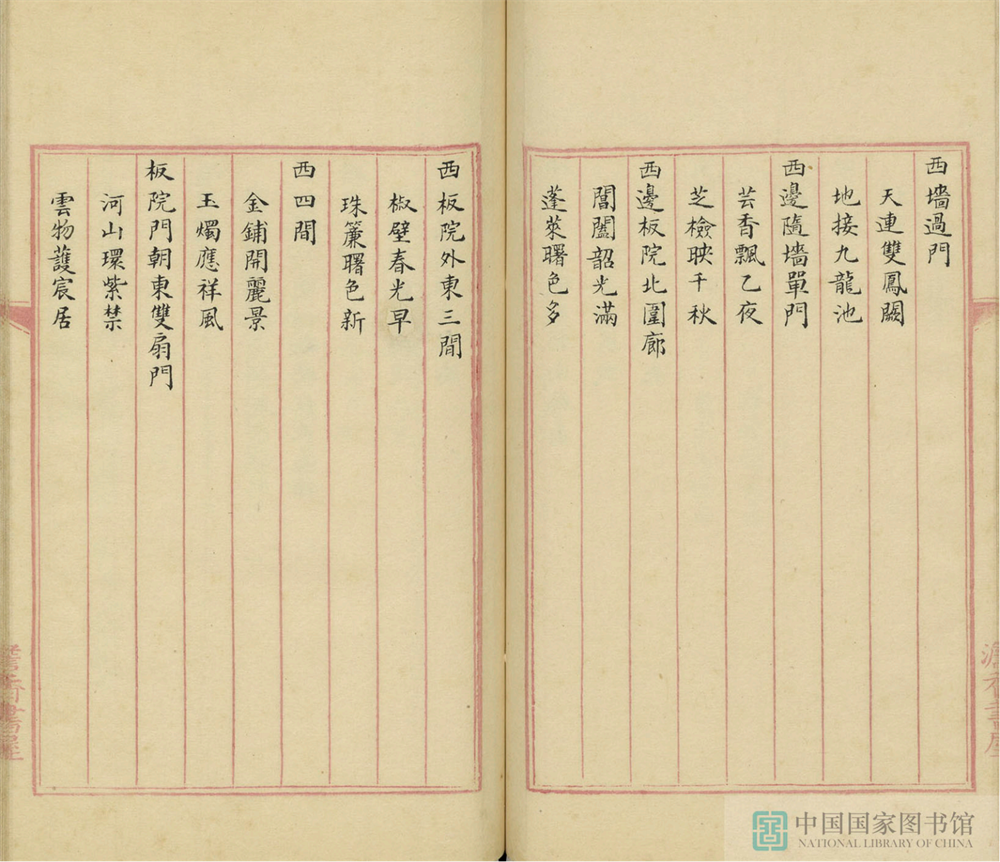 西墻過門
天連雙鳳闕
地接九龍池
西邊隨墻單門
芸香飄乙夜
芝檢映千秋
西邊板院北圍廊
閶闔韶光滿
蓬萊曙色多
西板院外東三間
椒壁春光早
珠簾曙色新
西四間
金鋪開麗景
玉燭應祥風
板院門朝東雙扇門
河山環紫禁
雲物護宸居
中国国家图书馆
NATIONAL LIBRARY OF CHINA